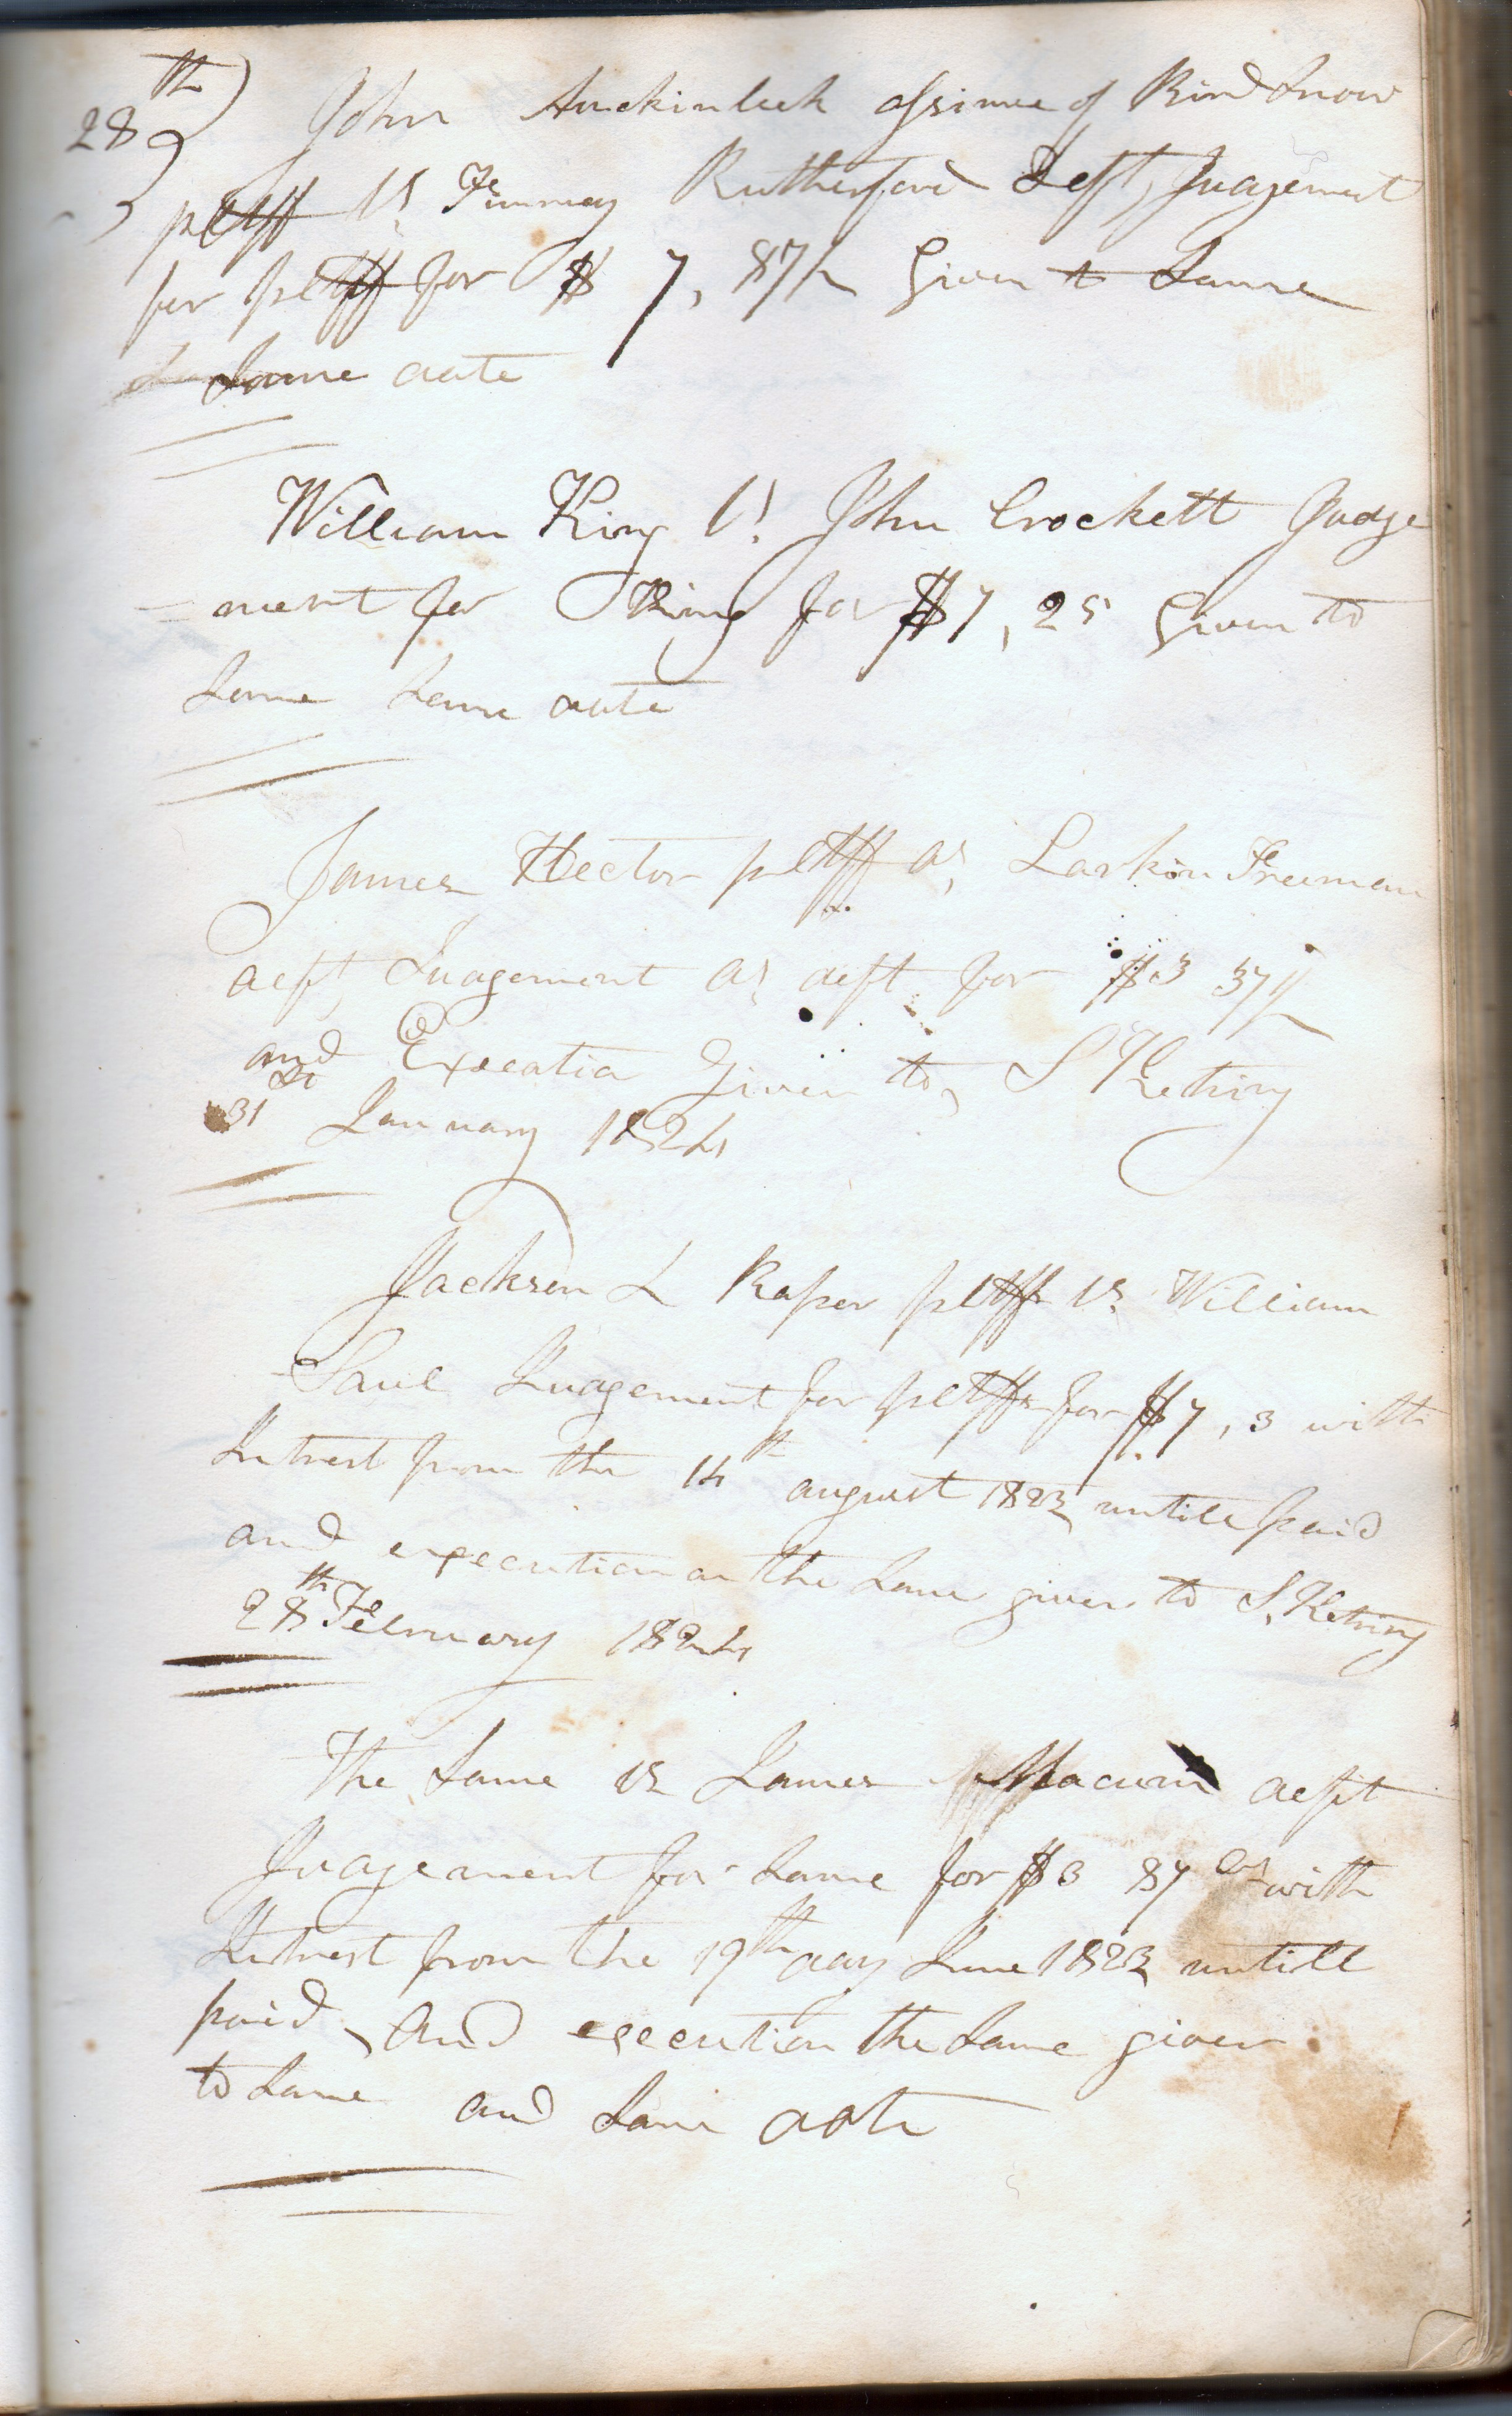 28th) John Auckinleck assinee of Bird Snow
pltff vs Finney Rutherford Deft, Judgement
for pltff for $ 7, 87 1/2 Given to Same
Same date
William King vs John Crockett Judge
= ment for King for $7, 25 Given to
Same Same date
James Hector pltff as Larkin Freeman
deft Judgement as deft for $3 37 1/2
and Execution Given to, S Ketring
31st January 1824
Jackson L Raper pltff vs William
Saul Judgement for pltff for $7, 3 with
Intrest from the 14th august 1823 untill paid
and execution on the Same given to S. Ketring
28th February 1824
The Same vs James deft
Judgement for Same for $3 87 cts with
Intrest from the 19th day June 1823 untill
paid, and execution the Same given
to Same and Same date